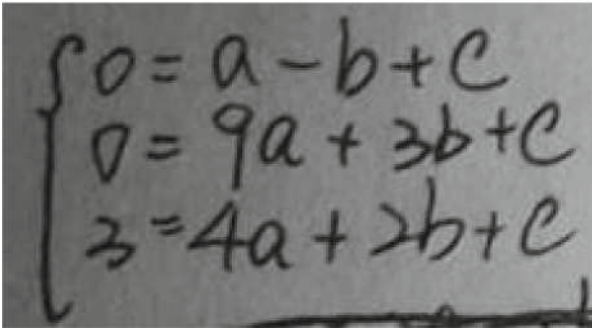 0=a-b+c
0=9a+3b+c
3=4a+2b+c